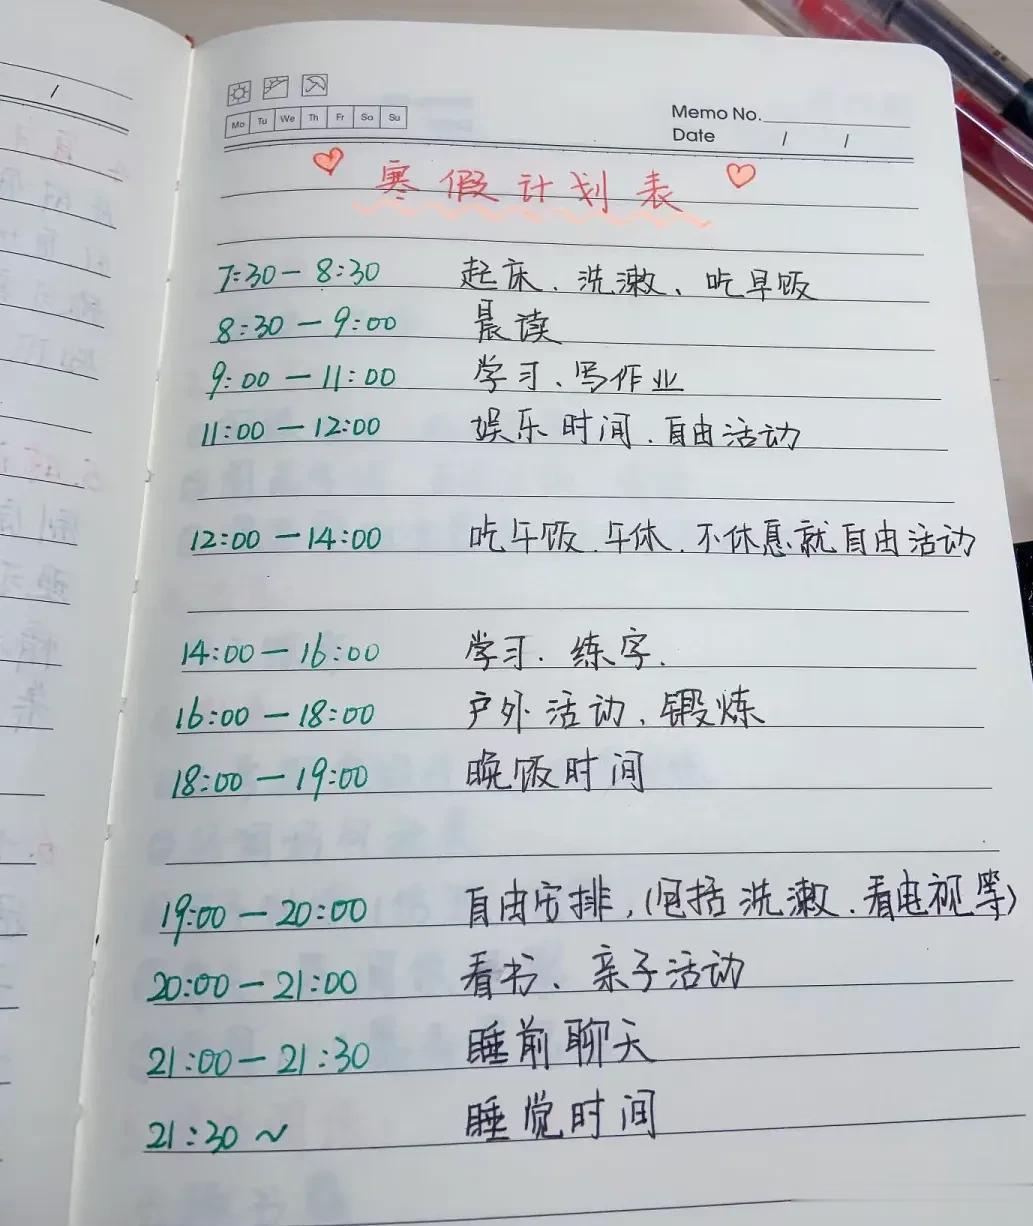 Mo Tu We Th Fr Sa Su
Memo No.
Date / /
寒假计划表
7:30－8:30 起床、洗漱、吃早饭
8:30－9:00 晨读
9:00－11:00 学习、写作业
11:00－12:00 娱乐时间、自由活动
12:00－14:00 吃午饭、午休、不休息就自由活动
14:00－16:00 学习、练字.
16:00－18:00 户外活动、锻炼
18:00－19:00 晚饭时间
19:00－20:00 自由安排,(包括洗漱、看电视等)
20:00－21:00 看书、亲子活动
21:00－21:30 睡前聊天
21:30～ 睡觉时间